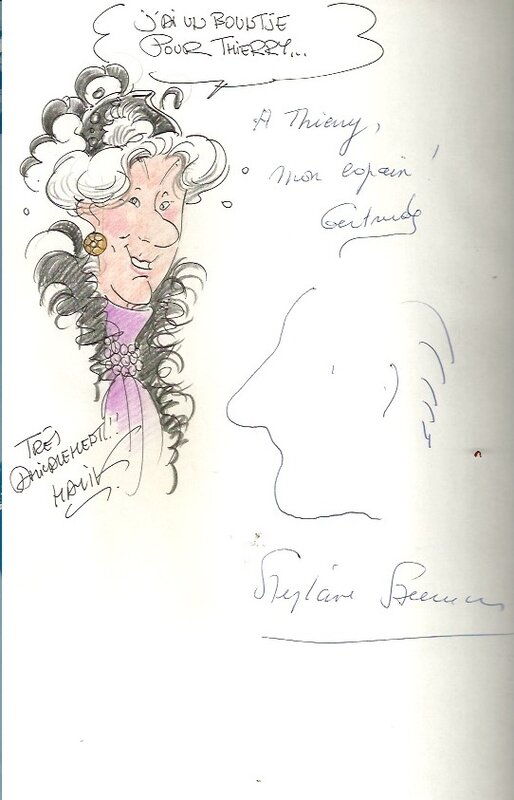 J'AI UN BOUNTJE
POUR THIERRY...
A Thierry,
mon copain !
Gertrude
TRÈS
AMICALEMENT!!
MALIK
Stéphane Steeman